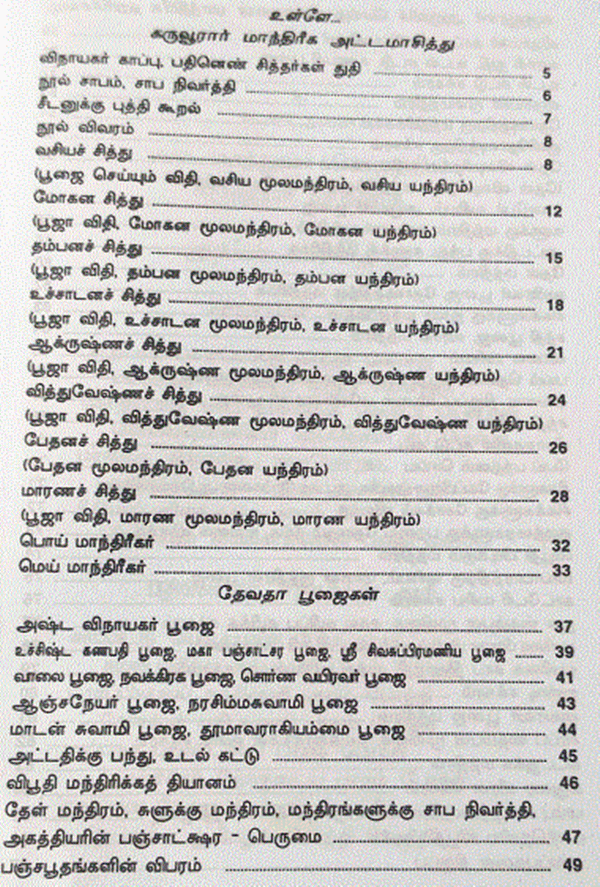 உள்ளே..
கருவூரார் மாந்திரீக அட்டமாசித்து
விநாயகர் காப்பு, பதினெண் சித்தர்கள் துதி ........ 5
நூல் சாபம், சாப நிவர்த்தி ........ 6
சீடனுக்கு புத்தி கூறல் ........ 7
நூல் விவரம் ........ 8
வசியச் சித்து ........ 8
(பூஜை செய்யும் விதி, வசிய மூலமந்திரம், வசிய யந்திரம்)
மோகன சித்து ........ 12
(பூஜா விதி, மோகன மூலமந்திரம், மோகன யந்திரம்)
தம்பனச் சித்து ........ 15
(பூஜா விதி, தம்பன மூலமந்திரம், தம்பன யந்திரம்)
உச்சாடனச் சித்து ........ 18
(பூஜா விதி, உச்சாடன மூலமந்திரம், உச்சாடன யந்திரம்)
ஆக்ருஷ்ணச் சித்து ........ 21
(பூஜா விதி, ஆக்ருஷ்ண மூலமந்திரம், ஆக்ருஷ்ண யந்திரம்)
வித்துவேஷ்ணச் சித்து ........ 24
(பூஜா விதி, வித்துவேஷ்ண மூலமந்திரம், வித்துவேஷ்ண யந்திரம்)
பேதனச் சித்து ........ 26
(பேதன மூலமந்திரம், பேதன யந்திரம்)
மாரணச் சித்து ........ 28
(பூஜா விதி, மாரண மூலமந்திரம், மாரண யந்திரம்)
பொய் மாந்திரீகர் ........ 32
மெய் மாந்திரீகர் ........ 33
தேவதா பூஜைகள்
அஷ்ட விநாயகர் பூஜை ........ 37
உச்சிஷ்ட கணபதி பூஜை, மகா பஞ்சாட்சர பூஜை, ஸ்ரீ சிவசுப்பிரமணிய பூஜை ........ 39
வாலை பூஜை, நவக்கிரக பூஜை, சொர்ண வயிரவர் பூஜை ........ 41
ஆஞ்சநேயர் பூஜை, நரசிம்மசுவாமி பூஜை ........ 43
மாடன் சுவாமி பூஜை, தூமாவராகியம்மை பூஜை ........ 44
அட்டதிக்கு பந்து, உடல் கட்டு ........ 45
விபூதி மந்திரிக்கத் தியானம் ........ 46
தேள் மந்திரம், சுளுக்கு மந்திரம், மந்திரங்களுக்கு சாப நிவர்த்தி,
அகத்தியரின் பஞ்சாட்க்ஷர - பெருமை ........ 47
பஞ்சபூதங்களின் விபரம் ........ 49